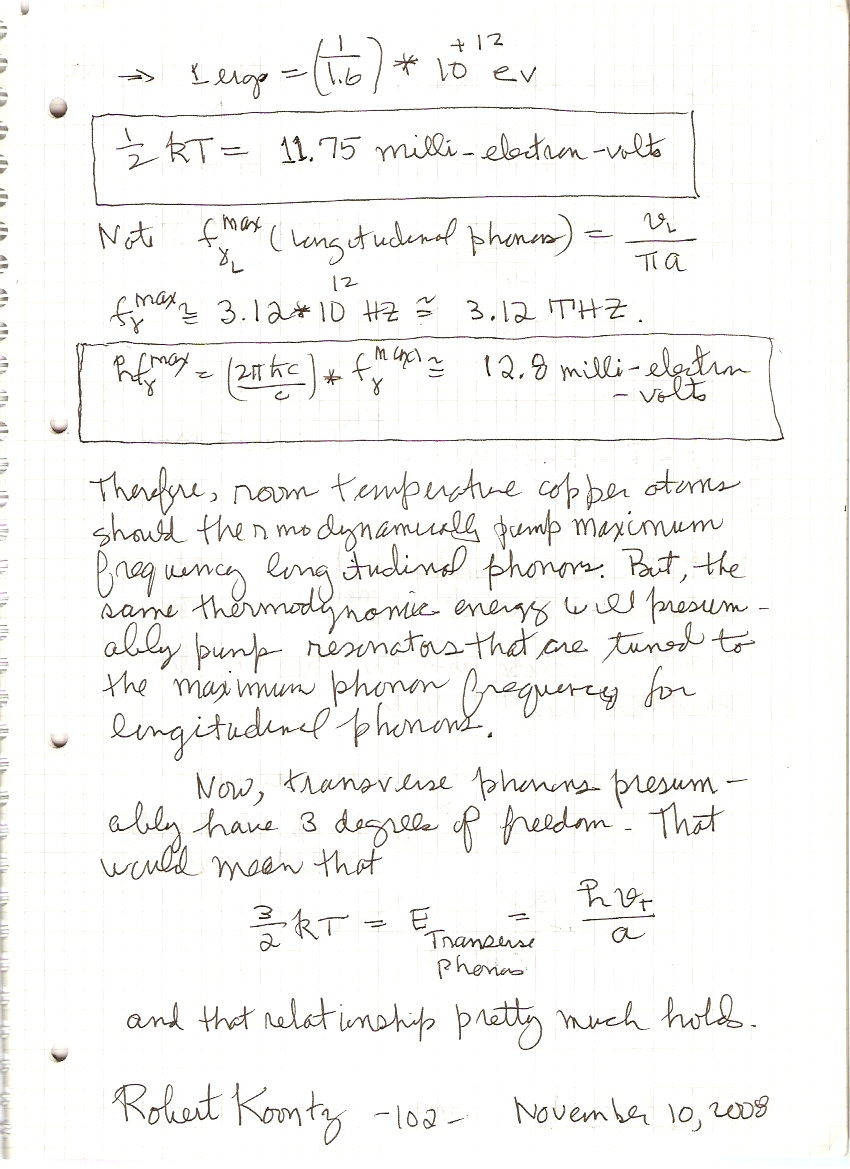 ⇒ 1 erg = (1/1.6) * 10^{+12} ev
1/2 kT = 11.75 milli-electron-volts
Note f_{γ_L}^{max} (longitudinal phonons) = v_L / πa
f_γ^{max} ≅ 3.12*10^{12} HZ ≅ 3.12 THZ.
hf_γ^{max} = (2πħc/c) * f_γ^{max} ≅ 12.8 milli-electron
-volts
Therefore, room temperature copper atoms
should thermodynamically pump maximum
frequency longitudinal phonons. But, the
same thermodynamic energy will presum-
ably pump resonators that are tuned to
the maximum phonon frequency for
longitudinal phonons.
Now, transverse phonons presum-
ably have 3 degrees of freedom. That
would mean that
3/2 kT = E_{Transverse Phonons} = h v_T / a
and that relationship pretty much holds.
Robert Koontz -102- November 10, 2008